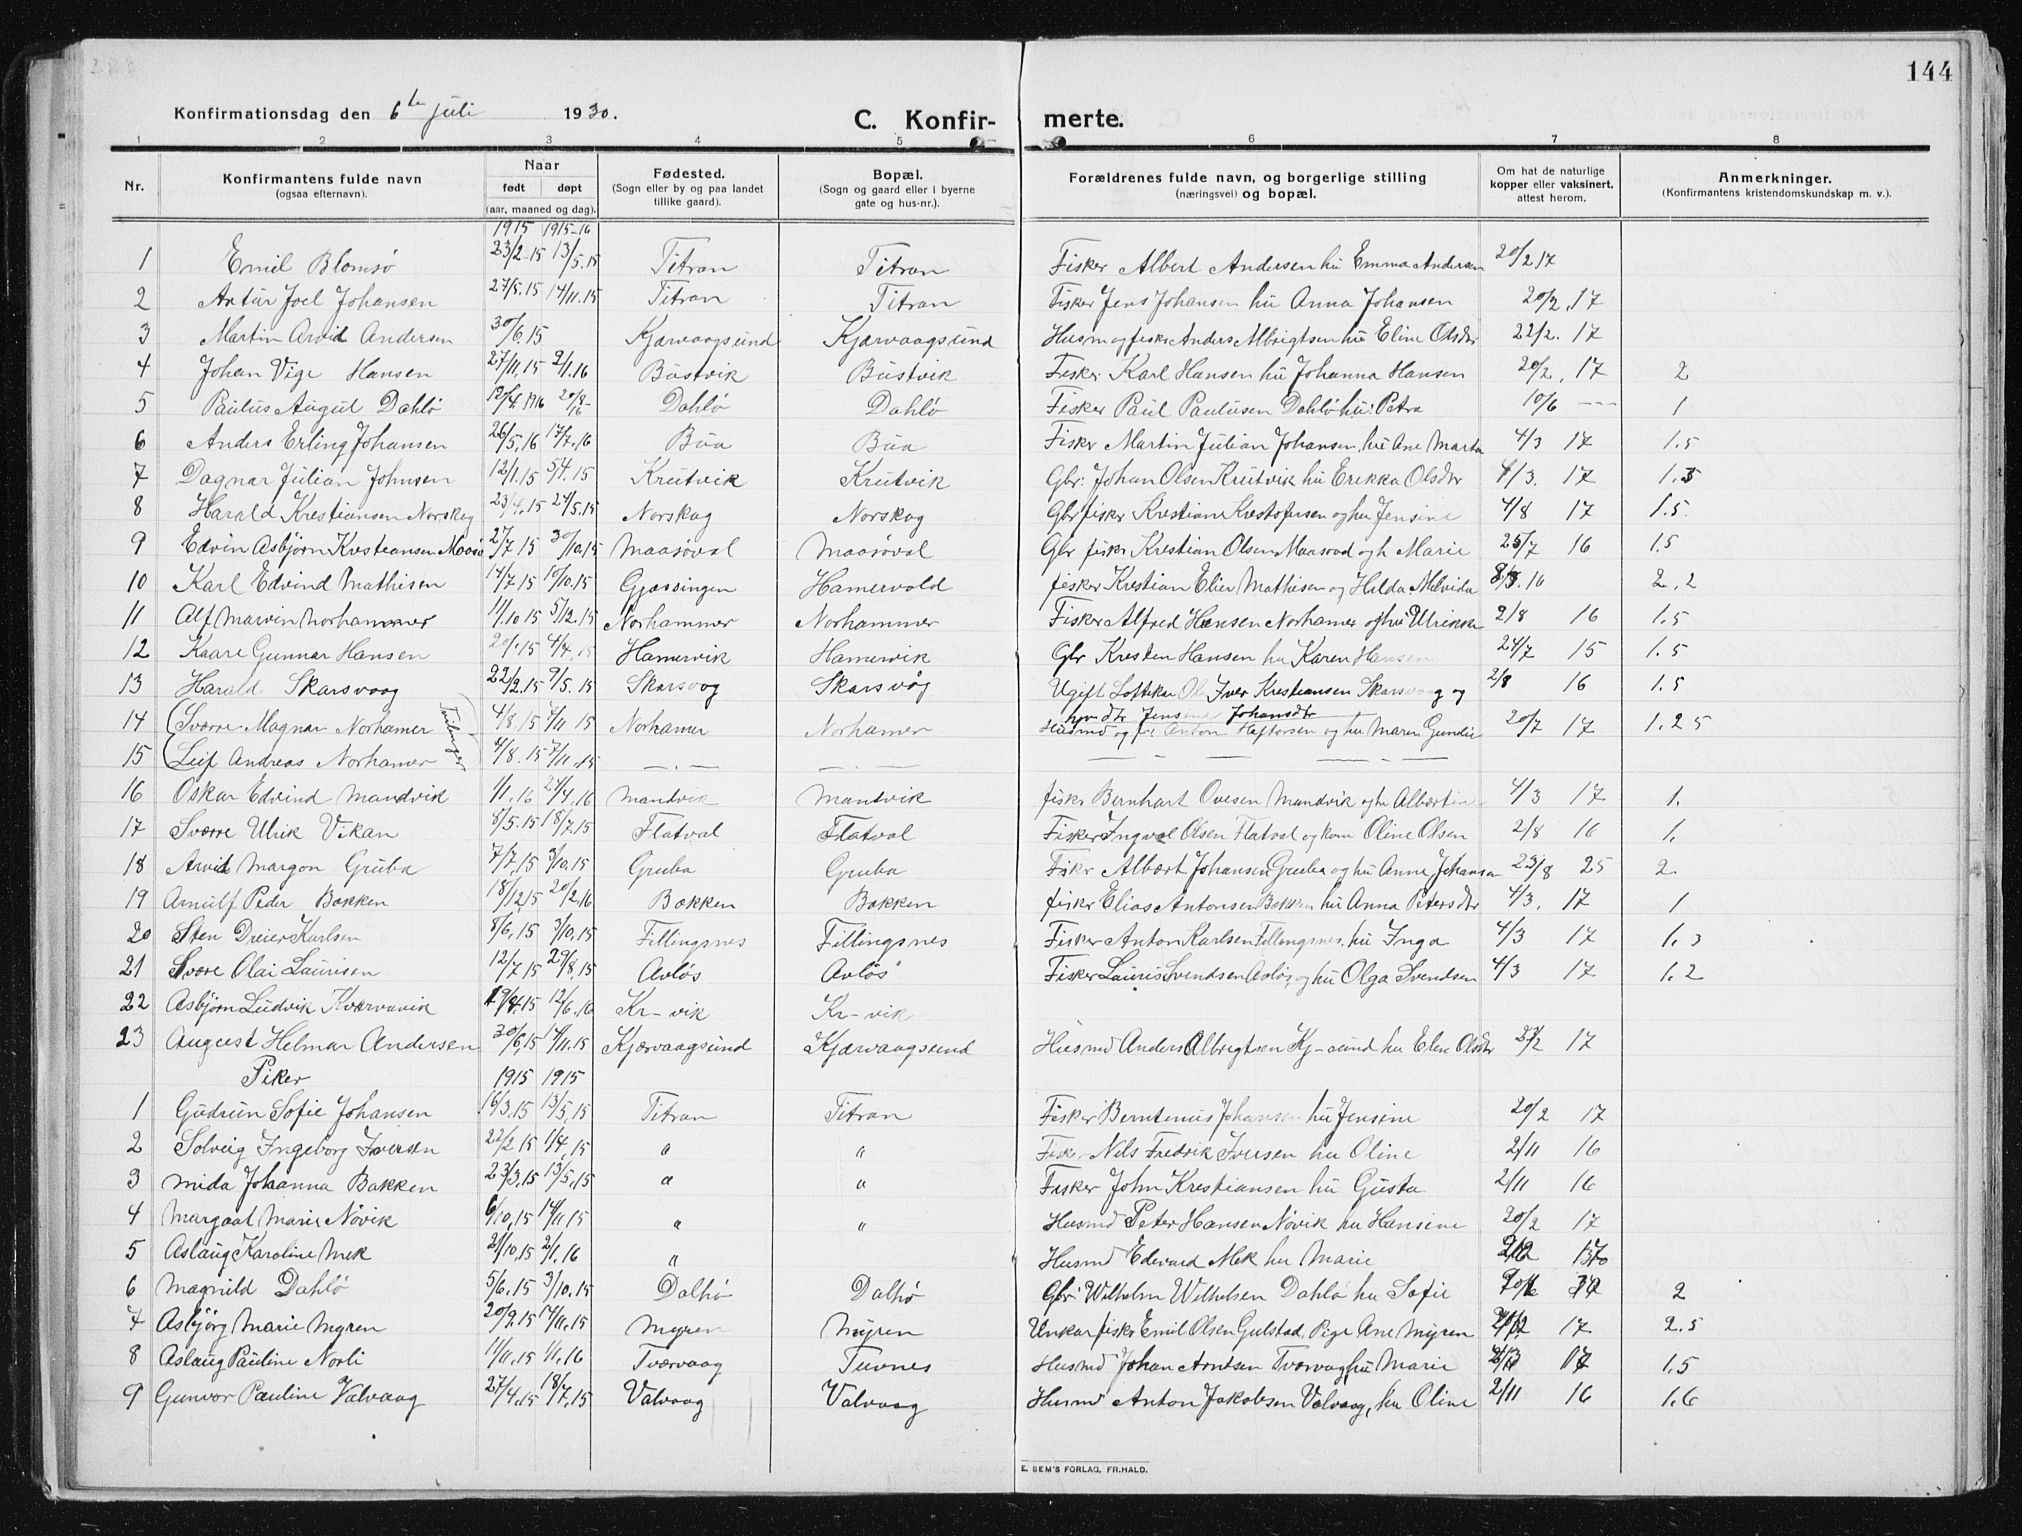 144
Konfirmationsdag den 6te juli 1930.
C. Konfir- merte.
1 2 3 4 5 6 7 8
Nr. Konfirmantens fulde navn (ogsaa efternavn). Naar født døpt (aar, maaned og dag). Fødested. (Sogn eller by og paa landet tillike gaard). Bopæl. (Sogn og gaard eller i byerne gate og hus-nr.). Forældrenes fulde navn, og borgerlige stilling (næringsvei) og bopæl. Om hat de naturlige kopper eller vaksinert, attest herom. Anmerkninger. (Konfirmantens kristendomskundskap m. v.).
1915 1915-16
1 Emil Blomsø 23/2-15 13/5.15 Titran Titran Fisker Albert Andersen hu Emma Andersen 20/2 17
2 Artur Joel Johansen 27/5.15 14/11.15 Titran Titran Fisker Jens Johansen hu Anna Johansen 20/2.17
3 Martin Arvid Andersen 30/6.15 Kjærvaagsund Kjærvaagsund Husm og fisker Anders Albrigtsen hu Eline Olsdtr 22/2. 17
4 Johan Vige Hansen 27/11.15 2/1.16 Bustvik Bustvik Fisker Karl Hansen hu Johanna Hansen 20/2, 17 2
5 Paulus Augul Dahlø 12/4.1916 20/8-16 Dahlø Dahlø Fisker Paul Paulusen Dahlø hu: Petra 10/6 --- 1
6 Anders Erling Johansen 26/5.16 17/7.16 Bua Bua Fisker Martin Julian Johansen, hu Ane Marta 4/3 17 1.5
7 Dagnar Julian Johnsen 12/1.15 5/4.15 Krutvik Krutvik Gbr: Johan Olsen Krutvik hu Erikka Olsdtr 4/3. 17 1.5
8 Harald Krestiansen Norskag 23/4.15 24/5.15 Norskag Norskag Gbr fisker Krestian Krestofersen og hu Jensine 4/8 17 1.5
9 Edvin Asbjørn Krestiansen Maasø 2/7 15 30/10.15 Maasøval Maasøval Gbr fisker Krestian Olsen Maasoval og h Marie 25/7 16 1.5
10 Karl Edvind Mathisen 14/7.15 10/10.15 Gjæssingen Hamervold fisker Krestian Elier Mathisen og Hilda Melvida 8/8.16 2.2
11 Alf Marvin Norhammer 11/10 15 5/12.15 Norhammer Norhammer Fisker Alfred Hansen Norhamer og hu Ulrikke 2/8 16 1.5
12 Kaare Gunnar Hansen 15 4/4.15 Hamervik Hamervik Gbr Kresten Hansen hu Karen Hansen 24/7 15 1.5
13 Harald Skarsvaag 22/2.15 9/5.15 Skarsvog Skarsvåg Ugift Iver Krestiansen Skarsvaag og 2/8 16 1.5
Jensine Johansdtr
14 Sverre Magnar Norhamer Tvilinger 4/8.15 7/11 15 Norhamer Norhamer Husmd og Anton Haftorsen og hu Maren Gundie 20/7 17 1.25
15 Leif Andreas Norhamer 4/8.15 7/11.15 —.— —.— — — — —.—
16 Oskar Edvind Mandvik 1/1.16 24/4.16 Mandvik Mandvik fisker Bernhart Ovesen Mandvik og hu Albertine 4/3 17 1.
17 Sverre Ulrik Vikan 8/5.15 18/7.15 Flatval Flatval Fisker Ingval Olsen Flatval og kone Oline Olsen 2/8 16 1.
18 Arvid Margon Gruba 7/7.15 3/10.15 Gruba Gruba Fisker Albert Johansen Gruba og hu Anna Johansen 23/8 25 2.
19 Arnulf Peder Bakken 18/12 15 20/2.16 Bakken Bakken fisker Elias Antonsen Bakken hu Anna Petersdtr 4/3. 17 1
20 Sten Dreier Karlsen 8/6.15 3/10.15 Fillingsnes Fillingsnes Fisker Anton Karlsen Fillingsnes, hu Inga 4/3 17 1.3
21 Sverre Olai Lauritsen 12/7.15 29/8.15 Avløs Avløs Fisker Laurits Svendsen Avløs, og hu Olga Svendsen 4/3 17 1.2
22 Asbjørn Ludvik Kværnavik 19/8.15 12/6.16 Kr-vik Kr-vik
23 August Helmar Andersen 30/6.15 14/11.15 Kjærvaagsund Kjærvaagsund Husmd Anders Albrigtsen Kj-sund hu Elen Olsdtr 22/2 17
Piker 1915 1915
1 Gudrun Sofie Johansen 16/3.15 13/5.15 Titran Titran Fisker Berntenius Johansen hu Jensine 20/2 17
2 Solveig Ingeborg Iversen 22/2.15 1/4.15 " " Fisker Nils Fredrik Iversen hu Oline 2/11 16
3 Mida Johanna Bakken 23/3.15 13/5.15 " " Fisker John Krestiansen hu Gusta 2/11 16
4 Margaat Marie Nøvik 6/10.15 14/11.15 " " Husmd Peter Hansen Nøvik hu Hansine 20/2 17
5 Aslaug Karoline Mek 21/10.15 2/1.16 " Husmd Edvard Mek hu Marie
6 Magnild Dahlø 5/6.15 3/10.15 Dalhø Dalhø Gbr: Wilhelm Wilhelsen Dahlø hu Sofie 2
7 Asbjørg Marie Myren 20/9.15 14/11.15 Myren Myren Unkar fisker Emil Olsen Gulstad, Pige Ane Myren 17 2.5
8 Aslaug Pauline Norli 11/11.15 1/1.16 Tværvaag Tuvnes Husmd Johan Arntsen Tværvaag hu Marie 17 1.5
9 Gunvor Pauline Valvaag 27/4.15 18/7.15 Valvaag Valvaag Husmd Anton Jakobsen Valvaag, hu Oline 2/11 16 1.6
E. SEM'S FORLAG, FR.HALD.